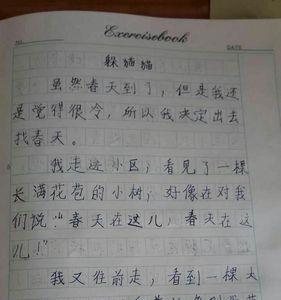 Exercisebook
DATE
躲猫猫
虽然春天到了，但是我还
是觉得很冷，所以我决定出去
找春天。
我走进小区，看见了一棵
长满花苞的小树，好像在对我
们说：“春天在这儿，春天在这
儿！”
我又往前走，看到一棵大